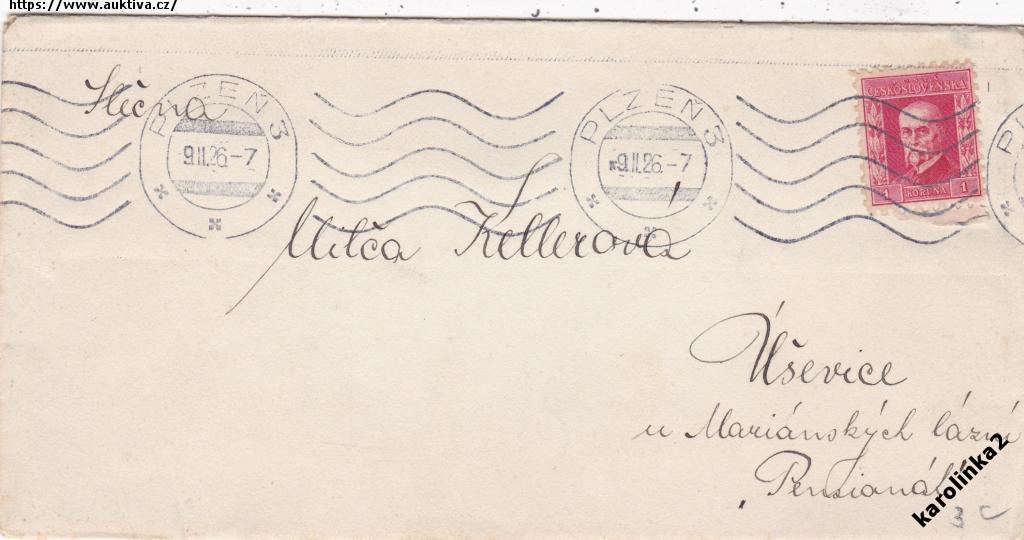 https://www.auktiva.cz/
Slečna
PLZEŇ 3
9.II.26.-7
PLZEŇ 3
*9.II.26.-7
ČESKOSLOVENSKÁ
1 KORUNA 1
Milča Kellerova
Úševice
u Mariánských lázní
Pensionát
karolinka2